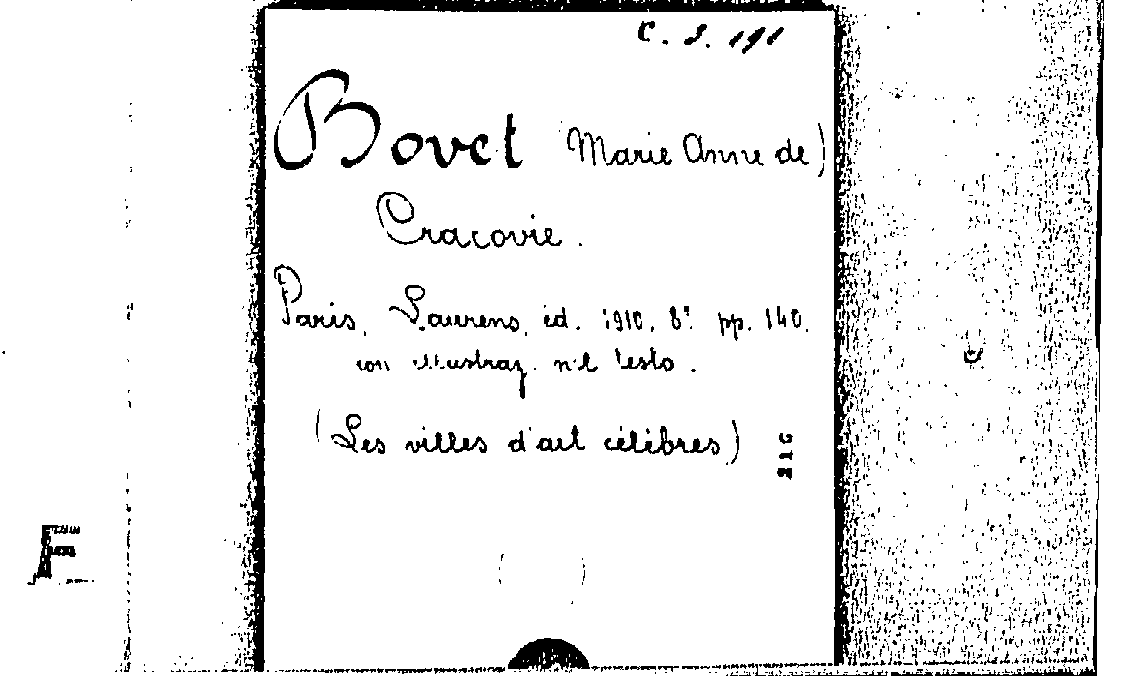 C. S. 191
Bovet Marie Anne de)
Cracovie.
Paris, Laurens, éd. 1910. 8° pp. 140.
con illustraz. n'l testo.
(Les villes d'art célèbres)
216
F